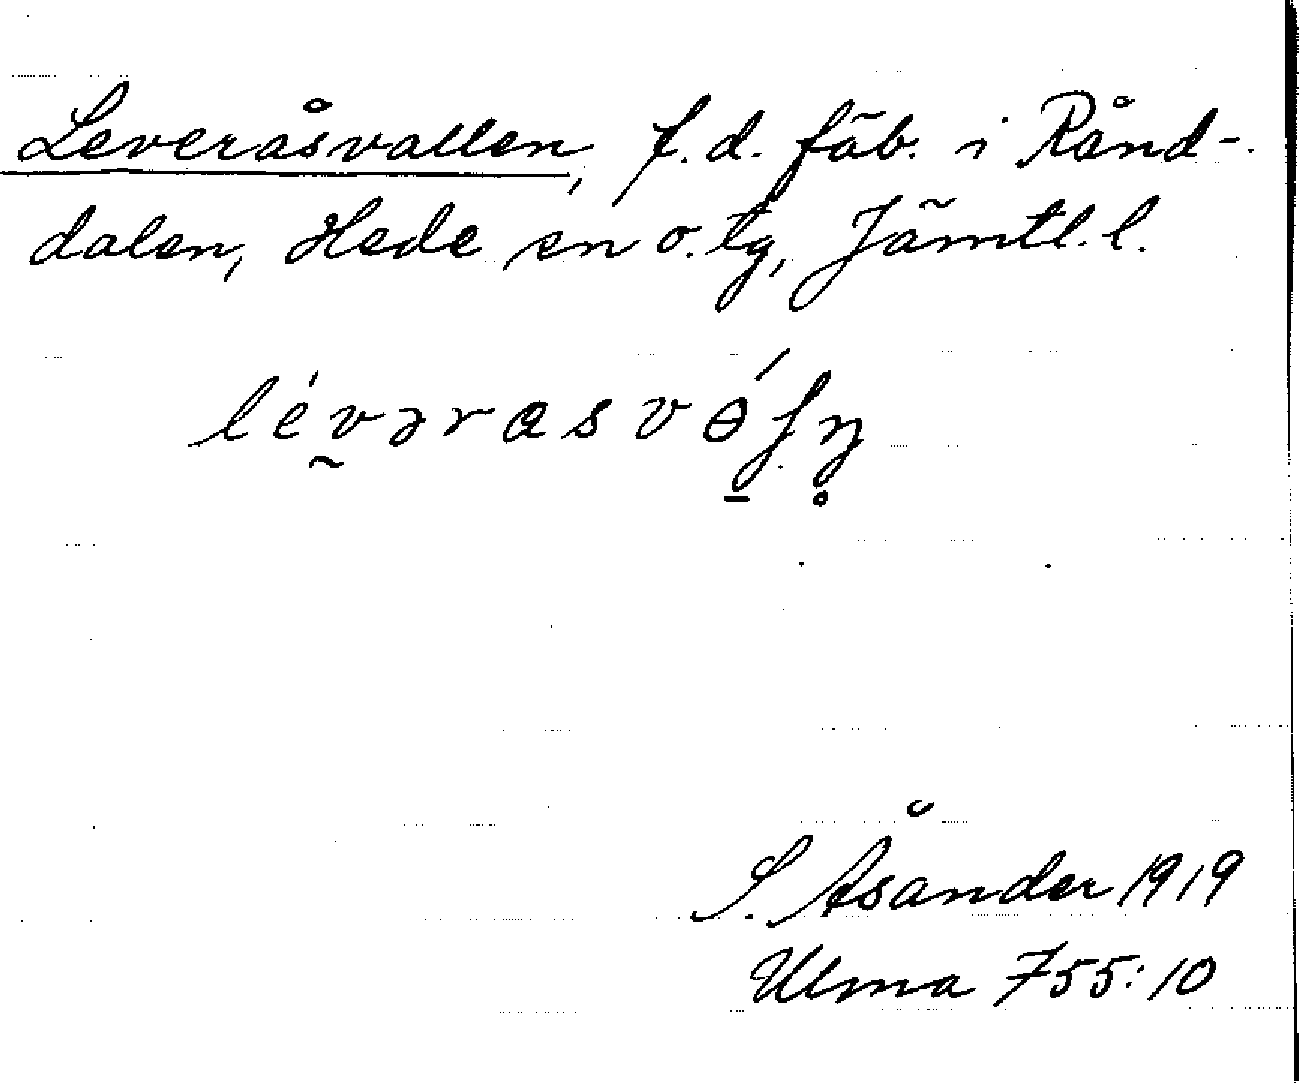 Leveråsvallen, f.d. fäb. i Rånd-
dalen, Hede sn o. tg, Jämtl. l.
S. Åsander 1919
Ulma 755:10